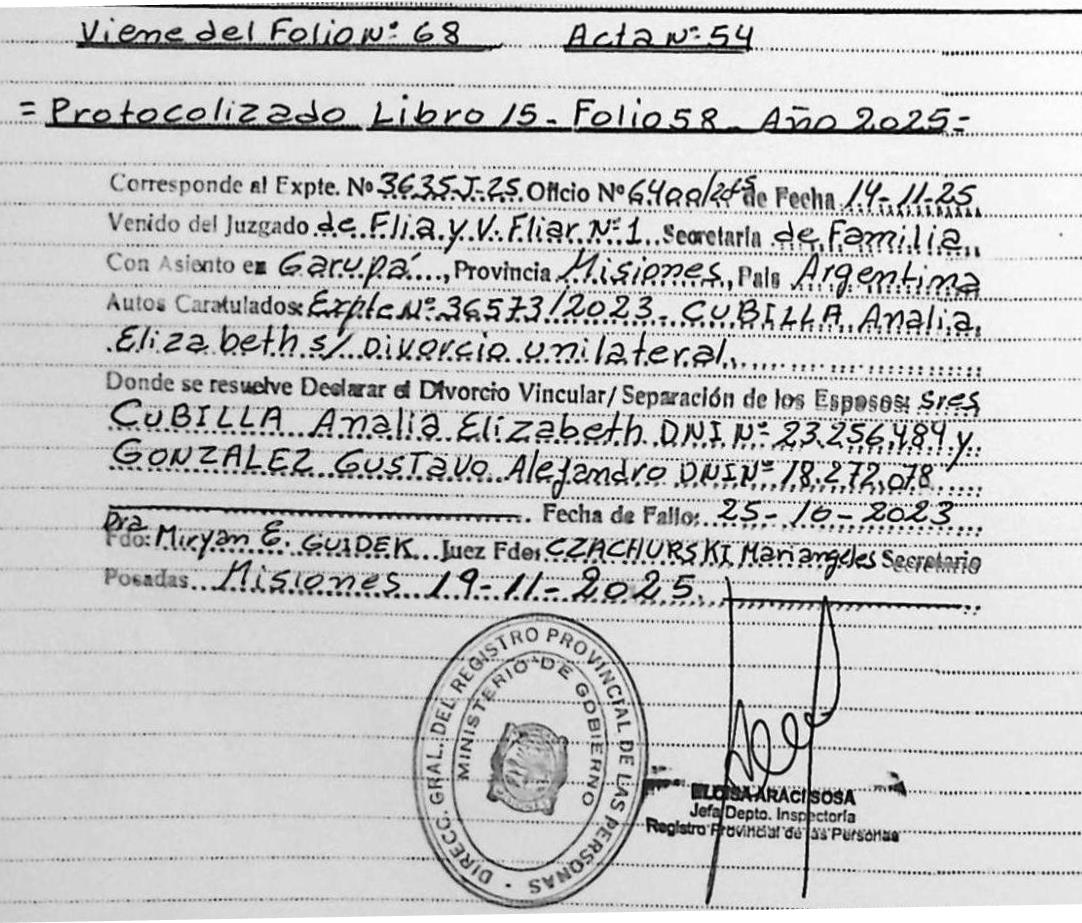 Viene del Folio Nº 68 Acta Nº 54
= Protocolizado Libro 15 - Folio 58 - Año 2025 -
Corresponde al Expte. Nº 3635-J-25 Oficio Nº 6400/2025 de Fecha 14-11-25
Venido del Juzgado de Flia. y V. Fliar. Nº 1 Secretaría de Familia
Con Asiento en Garupá, Provincia Misiones, País Argentina
Autos Caratulados: Expte Nº 36573/2023 - CUBILLA Analia
Elizabeth s/ Divorcio unilateral.
Donde se resuelve Declarar el Divorcio Vincular/ Separación de los Esposos: sres
CUBILLA Analia Elizabeth DNI Nº 23.256.484 y
GONZALEZ Gustavo Alejandro DNI Nº 18.272.078
Fecha de Fallo: 25-10-2023
Dra
Fdo: Miryan E. GUIDEK Juez Fdo: CZACHURSKI Mariangeles Secretario
Posadas Misiones 19-11-2025.
DIRECC. GRAL. DEL REGISTRO PROVINCIAL DE LAS PERSONAS
MINISTERIO DE GOBIERNO
ELOISA ARACI SOSA
Jefa Depto. Inspectoría
Registro Provincial de las Personas